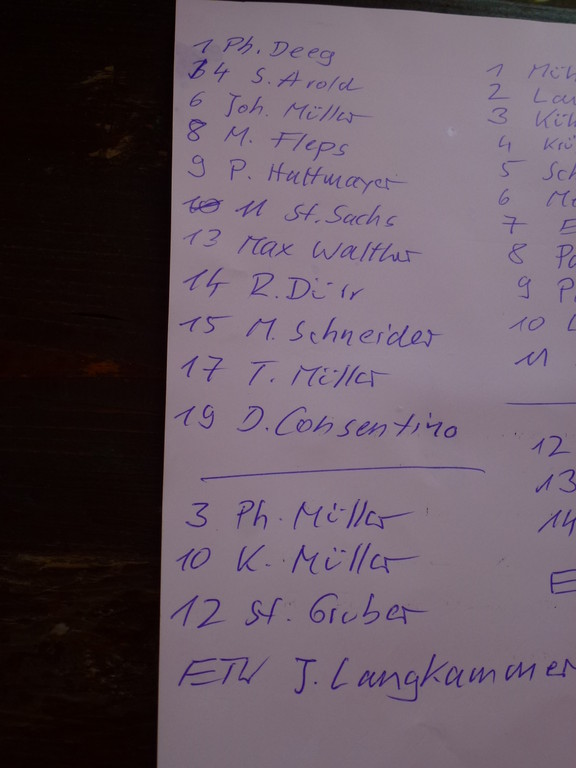 1 Ph. Deeg
4 S. Arold
6 Joh. Müller
8 M. Fleps
9 P. Huttmayer
11 St. Sachs
13 Max Walther
14 R. Dürr
15 M. Schneider
17 T. Müller
19 D. Consentino
3 Ph. Müller
10 K. Müller
12 St. Gruber
ETW J. Langkammer
1
2
3
4
5
6
7
8
9
10
11
12
13
14